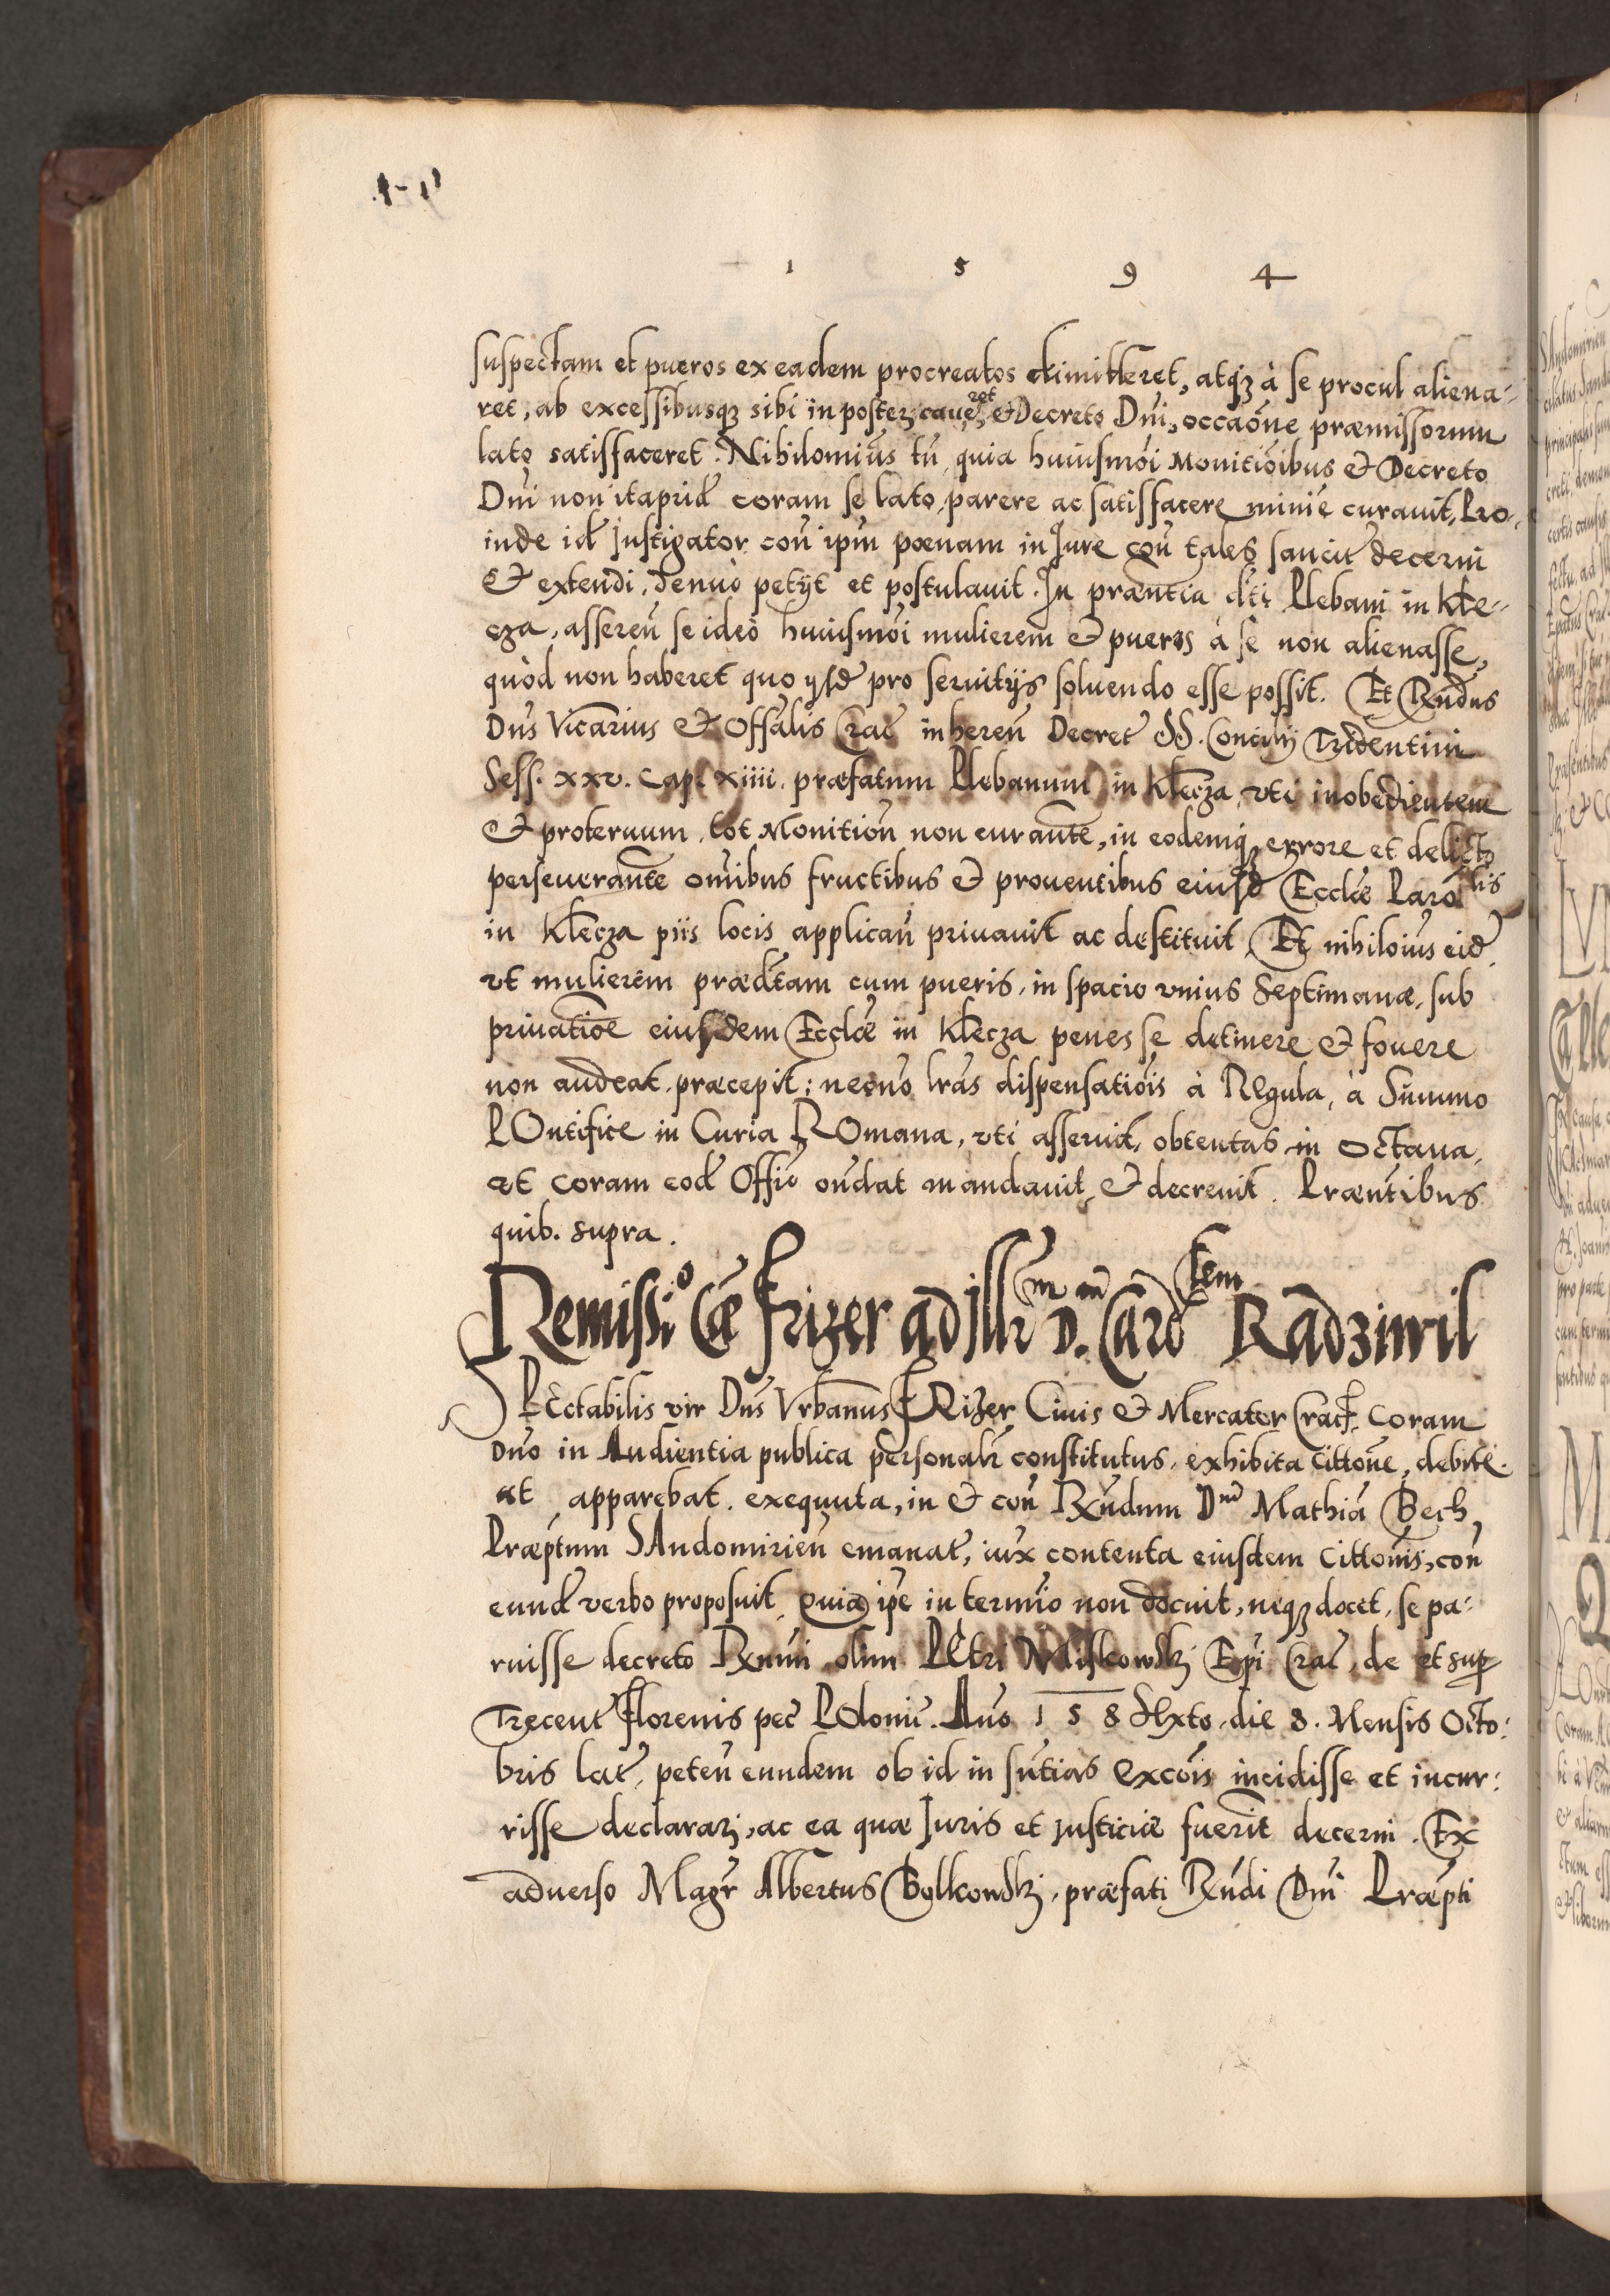 1 5 9 4
suspectam et pueros ex eadem procreatos dimitteret, atqꝫ à se procul aliena-
ret, ab excessibusqꝫ sibi in posterꝫ caueret, et Decreto Dni, occaone præmissorum
lato satisfaceret. Nihilominus tn quia huiusmoi Monitioibus et Decreto
Dni non itaprid coram se lato, parere ac satisfacere minie curauit, Pro-
inde id Instigator con ipm pœnam in Jure con tales sancit decerni
et extendi, denuò petijt et postulauit. In præntia dti Plebani in Kle-
cza, asseren se ideò huiusmoi mulierem et pueros à se non alienasse,
quòd non haberet quo ijsd pro seruitijs soluendo esse possit. Et Rndus
Dns Vicarius et Offalis Crac inheren Decret SS. Concilij Tridentini
Sess. xxv. Cap. xiiii. præfatum Plebanum in Klecza, vti inobedientem
et proteruum, tot Monition non curante, in eodemqꝫ errore et delicto
perseuerante omibus fructibus et prouentibus eiusd Eccliæ Parolis
in Klecza piis locis applican priuauit ac destituit, Et nihiloius eid
vt mulierem prædtam cum pueris, in spacio vnius Septimanæ, sub
priuatioe eiusdem Eccliæ in Klecza penes se detinere et fouere
non audeat, præcepit: necno lras dispensatiois à Regula, à Summo
POntifice in Curia ROmana, vti asseruit, obtentas, in octaua,
vt coram eod Offio ondat mandauit, et decreuit. Præntibus
quib. supra.
Remissio Cæ Frizer ad Illrm D. Cardlem Radziwil
SPEctabilis vir Dns Vrbanus FRizer Ciuis et Mercator Crac, Coram
Dno in Audientia publica personalr constitutus, exhibita cittone, debite
vt apparebat, exequuta, in et con Rndum Dnm Mathia Bech,
Præptum SAndomirien emanat, iux contenta eiusdem cittonis, con
eund verbo proposuit, quia ipe in termio non docuit, neqꝫ docet, se pa-
ruisse decreto Rxmi olim PEtri Miskowskj Epi Crac, de et sup
Trecent Florenis pec POlonic. Ano 1 5 8 Sexto, die 8. Mensis Octo-
bris lat, peten eundem ob id in sntias excois incidisse et incur-
risse declararj, ac ea quæ Juris et justiciæ fuerit decerni. Ex
aduerso Magr Albertus Bolkowskj, præfati Rndi Dni Præpti